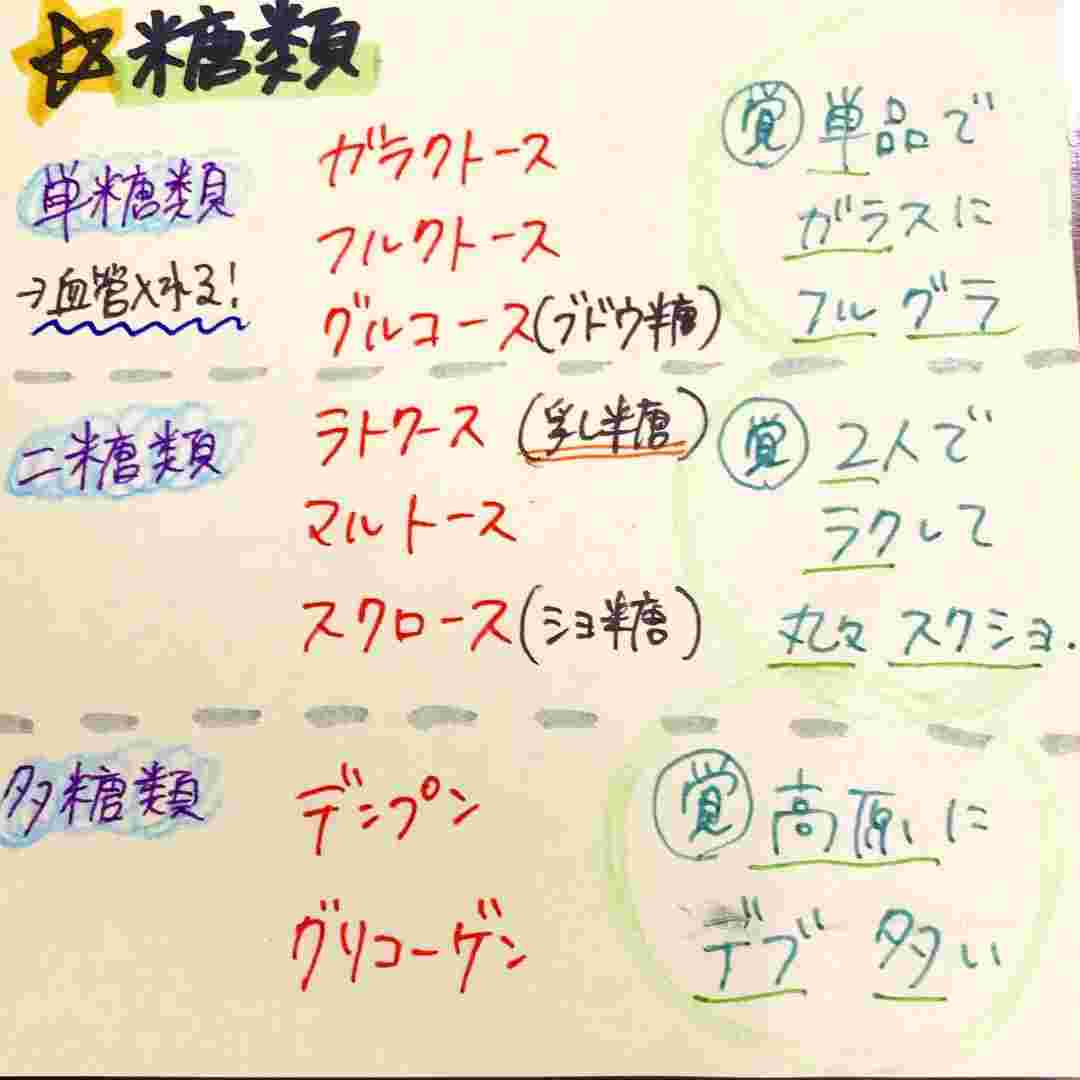 ☆糖類
単糖類
→血管入れる!
ガラクトース
フルクトース
グルコース(ブドウ糖)
覚 単品で
ガラスに
フルグラ
二糖類
ラトクース(乳糖)
マルトース
スクロース(ショ糖)
覚 2人で
ラクして
丸々スクショ.
多糖類
デンプン
グリコーゲン
覚 高原に
デブ 多い